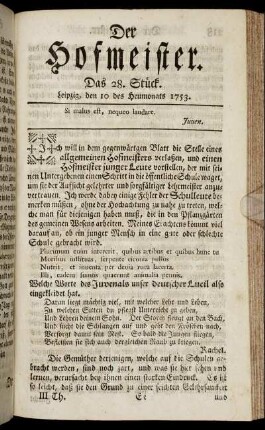 Der
Hofmeister.
Das 28. Stück.
Leipzig, den 10 des Heumonats 1753.
Si malus est, nequeo laudare.
Juven.
Ich will in dem gegenwärtigen Blatt die Stelle eines
allgemeinen Hofmeisters verlaßen, und einen
Hofmeister junger Leute vorstellen, der mit seinen
Untergebenen einen Schritt in die öffentliche Schule waget,
um sie der Aufsicht gelehrter und sorgfältiger Lehrmeister anzuvertrauen.
Ich werde dabey einige Fehler der Schulleute bemerken
müssen, ohne der Hochachtung zu nahe zu treten, welche
man für diejenigen haben muß, die in den Pflanzgärten
des gemeinen Wesens arbeiten. Meines Erachtens kömmt viel
darauf an, ob ein junger Mensch in eine gute oder schlechte
Schule gebracht wird.
Plurimum enim intererit, quibus artibus et quibus hunc tu
Moribus instituas, serpente ciconia pullos
Nutrit, et inuenta per deuia rura lacerta.
Illi, eadem sumtis quaerunt animalia pennis.
Welche Worte des Juvenals unser deutscher Lucil also
eingekleidet hat.
Daran liegt mächtig viel, mit welcher Lehr und Leben,
Zu welchen Sitten du pflegst Unterricht zu geben,
Und Lehren deinem Sohn. Der Storch fleugt an den Bach,
Und sucht die Schlangen auf und geht den Kröten nach,
Versorgt damit sein Nest. So bald die Jungen fliegen,
Befleißen sie sich auch dergleichen Raub zu kriegen.
Rachel.
Die Gemüther derienigen, welche auf die Schulen gebracht
werden, sind noch zart, und was sie hier sehen und
lernen, verursacht bey ihnen einen starken Eindruck. Es ist
so leicht, daß sie den Grund zu einer seichten Gelehrsamkeit
III. Th. Ee und